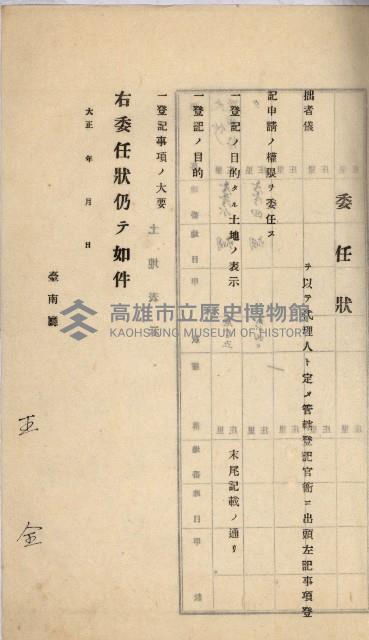 委任狀
拙者儀　　　　　ヲ以テ代理人ト定メ管轄登記官衙ニ出頭左記事項登
記申請ノ權限ヲ委任ス
一登記ノ目的タル土地ノ表示　　　末尾記載ノ通リ
一登記ノ目的
一登記事項ノ大要
右委任狀仍テ如件
大正　年　月　日
臺南廳
王　金
高雄市立歷史博物館
KAOHSIUNG MUSEUM OF HISTORY